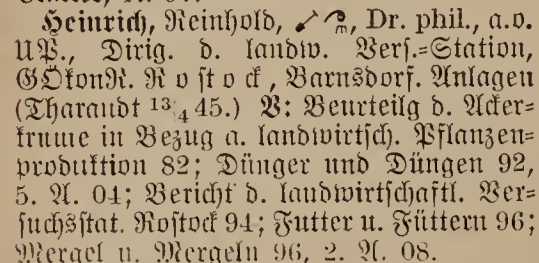 Heinrich, Reinhold, Dr. phil., a.o.
UP., Dirig. d. landw. Vers.=Station,
GÖkonR. Rostock, Barnsdorf. Anlagen
(Tharandt 13/4 45.) V: Beurteilg d. Acker=
krume in Bezug a. landwirtsch. Pflanzen=
produktion 82; Dünger und Düngen 92,
5. A. 04; Bericht d. landwirtschaftl. Ver=
suchsstat. Rostock 94; Futter u. Füttern 96;
Mergel u. Mergeln 96, 2. A. 08.